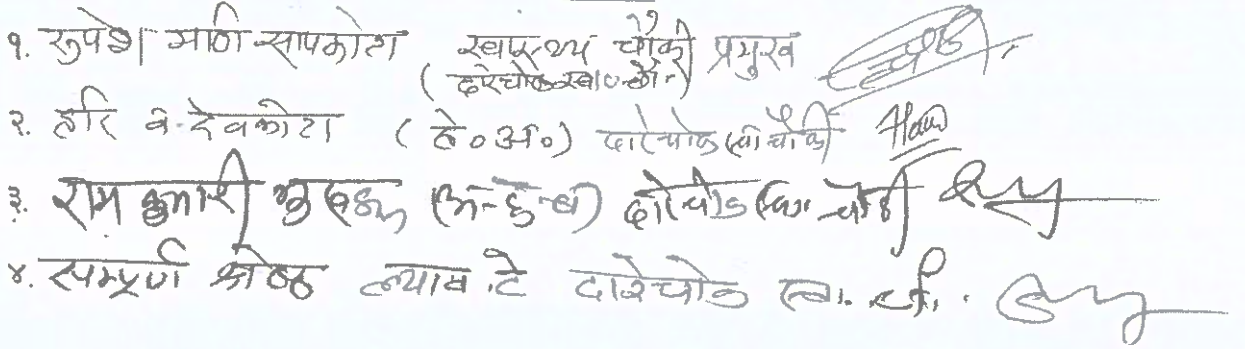 १. रुपेश मणि सापकोटा स्वास्थ्य चौकी प्रमुख
(दारेचोक स्वा० चौ०)
२. हरि व. देवकोटा (हे० अ०) दारेचोक स्वा चौकी
३. राम कुमारी (अ-हे-व) दारेचोक स्वा. चौकी
४. सम्पूर्ण श्रेष्ठ ल्याब टे दारेचोक स्वा. चौ.